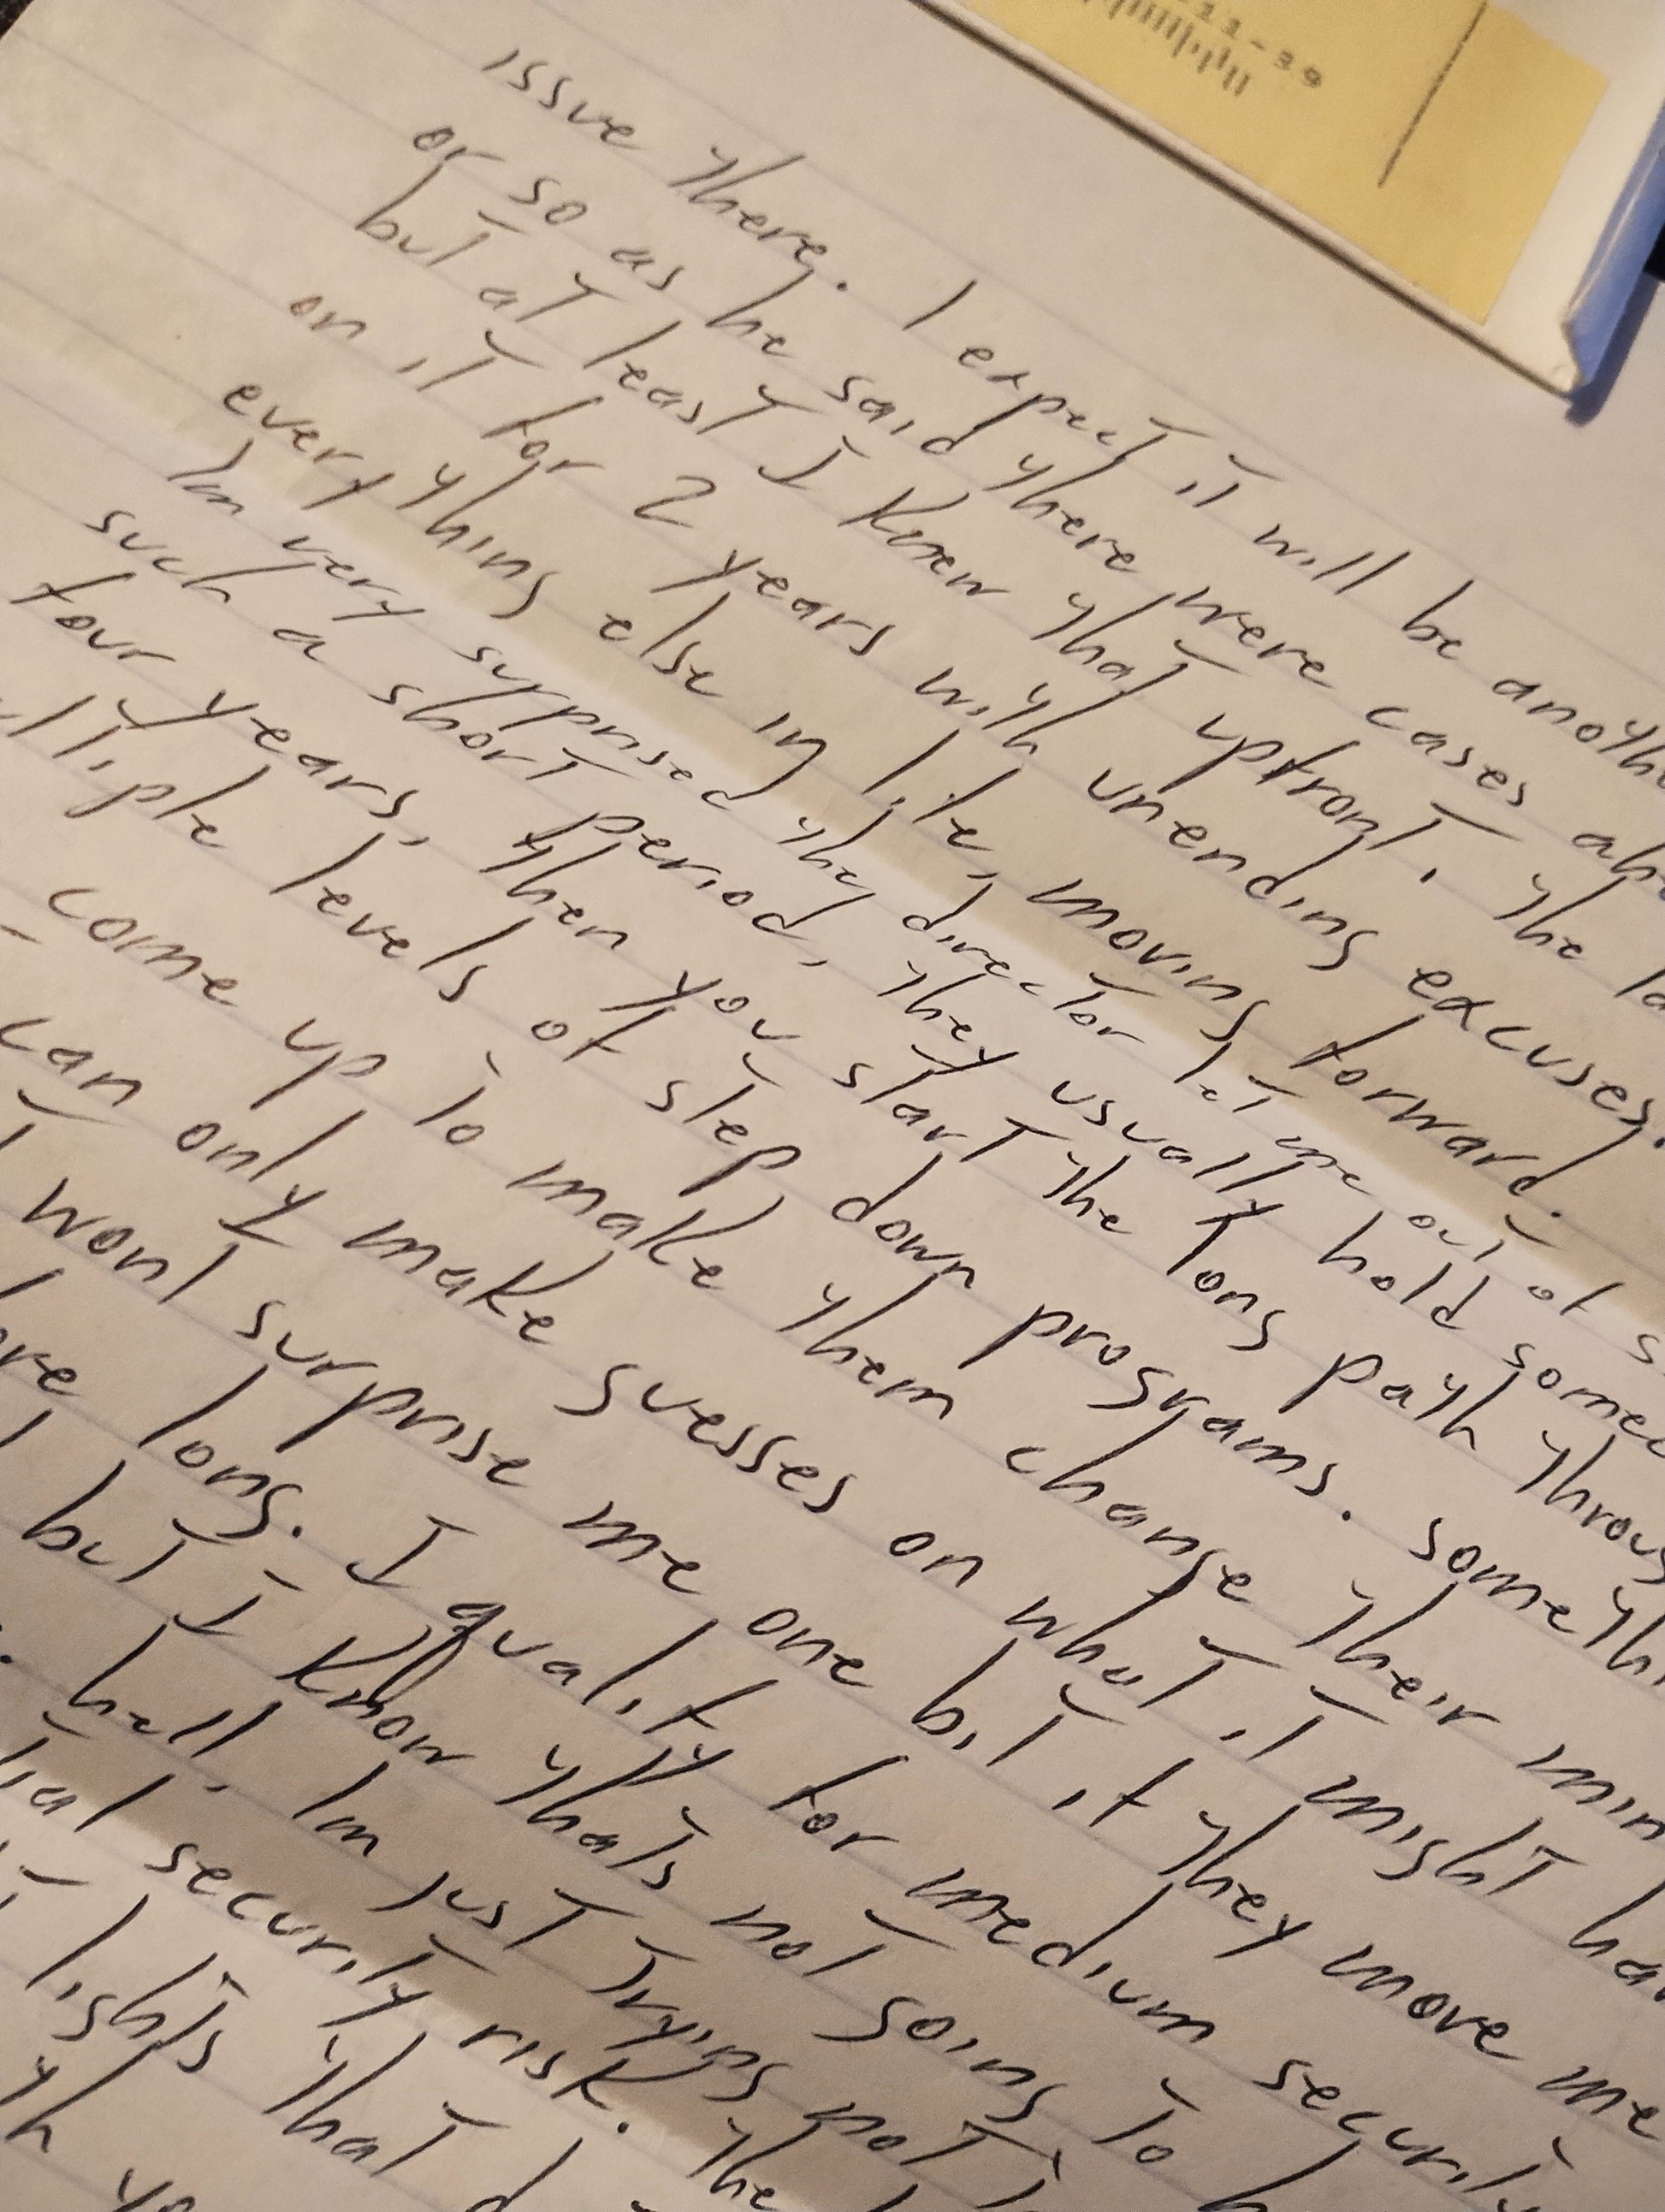 22-29
issue there. I expect it will be
or so as he said there were cases
but at least I knew that upfront. The
on it for 2 years with unending excuses.
everything else in life, moving forward.
Im very surprised the director let me out of
such a short period, they usually hold
four years, then you start the long path
levels of step down programs.
come up to make them change their
can only make guesses on what it might
wont surprise me one bit if they move me
long. I qualify for medium
but I know thats not going to
hell, Im just trying not
security risk. The
lights that